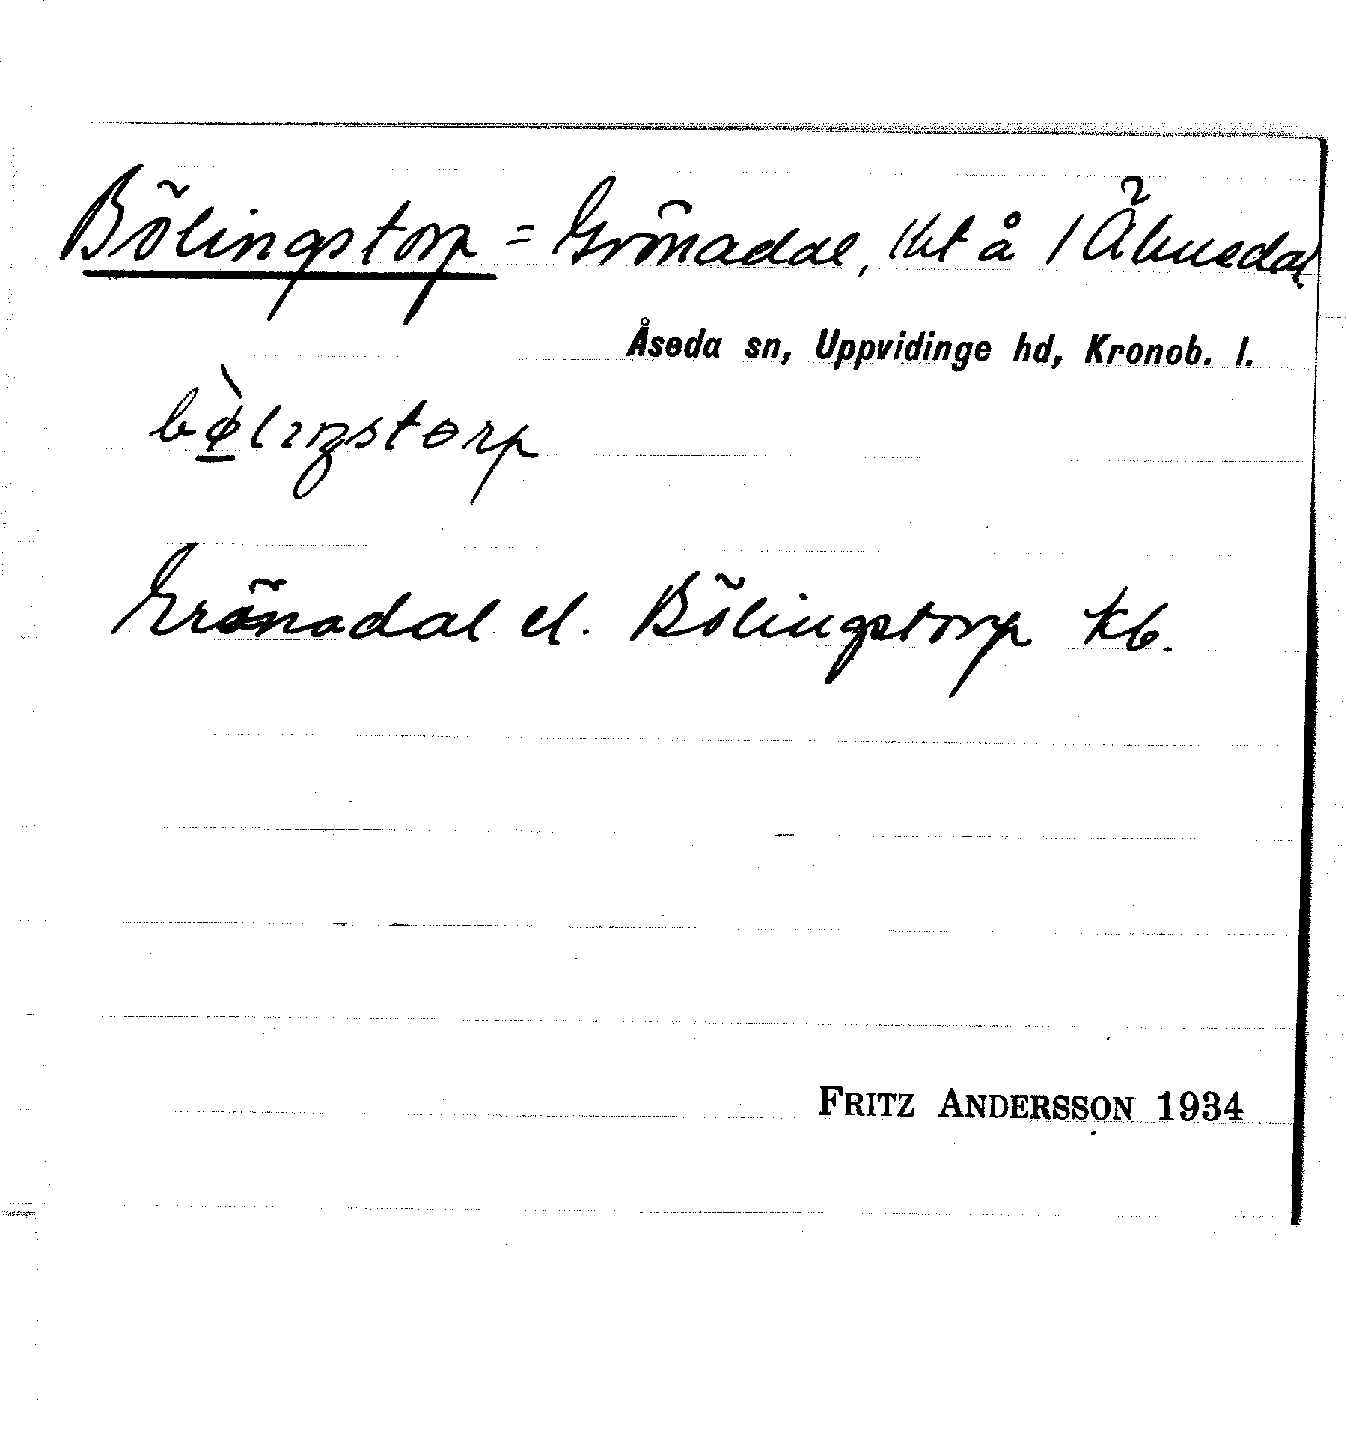 Bölingstorp = Grönadal, lht å 1 Älmedal
Åseda sn, Uppvidinge hd, Kronob. l.
bø̀lıŋstorp
Grönadal el. Bölingstorp kb.
FRITZ ANDERSSON 1934